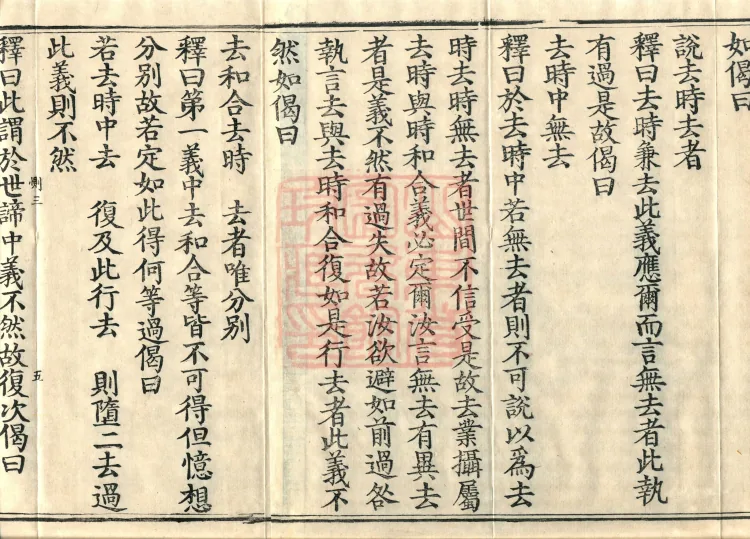 如偈曰
說去時去者
釋曰去時兼去此義應爾而言無去者此執
有過是故偈曰
去時中無去
釋曰於去時中若無去者則不可說以為去
時去時無去者世間不信受是故去業攝屬
去時與時和合義必定爾汝言無去有異去
者是義不然有過失故若汝欲避如前過咎
執言去與去時和合復如是行去者此義不
然如偈曰
去和合去時 去者唯分別
釋曰第一義中去和合等皆不可得但憶想
分別故若定如此得何等過偈曰
若去時中去 復及此行去 則墮二去過
此義則不然
惻三 五
釋曰此謂於世諦中義不然故復次偈曰